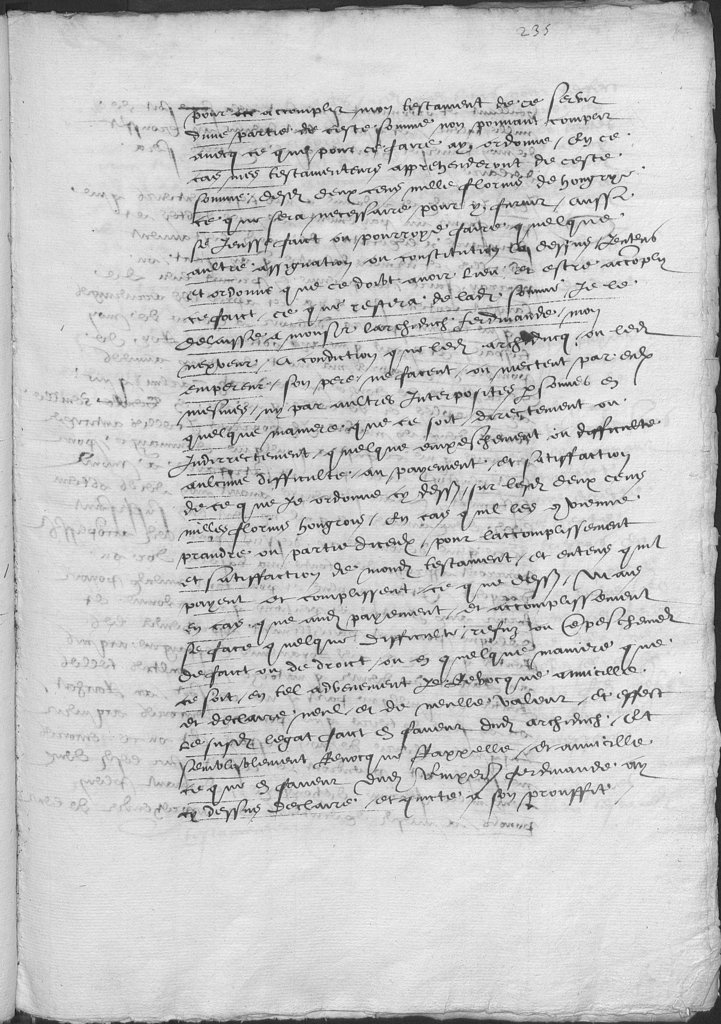 235
pour accomplir mon testament de ce servir
dune partie de ceste somme non pouuant complir
auecq ce que pour ce faire ay ordonne / En ce
cas mes testamenteurs apprehenderont de ceste
somme / desd deux cens mille florins de hongrye
ce que sera necessaire pour y furnir / aussi
se Ieusse faict ou pourroye faire quelque
aultre assignation ou constitution dessus Ientens
et ordonne que ce doibt auoir lieu et estre accomply
ce faict / ce que restera de lad somme / Ie le
delaisse a monsr larchiduch ferdinande / mon
nepveur / A condiction que led archiducq / ou led
empereur / son pere / ne facent / ou mectent par eulx
mesmes / ny par aultres Interposites psonnes en
quelque maniere que ce soit / directement ou
Indirectement / quelque empeschement ou difficulte
aulcune difficulte au payement / et satisfaction
de ce que Ie ordonne cy dess / sur lesd deux cens
milles florins hongrois / En cas quil les conuienne
prandre ou partie diceulx / pour laccomplissement
et satisfaction de mond testament / et entens quil
payent et complissent / ce que dess / Mais
en cas que aud payement / et accomplissement
se face quelque difficulte / refuz / ou epeschement
de faict ou de droict / ou en quelque maniere que
ce soit / en tel aduenement Ie Reuocque annicille
et declaire nul / et de nulle valeur / et effect
le susd legat faict en faueur dud archiduch / Et
semblablement Reuocque Rappelle / et annicille
ce que en faueur dud Empereur ferdinande ay
cy dessus declaire / et quicte a son prouffit /